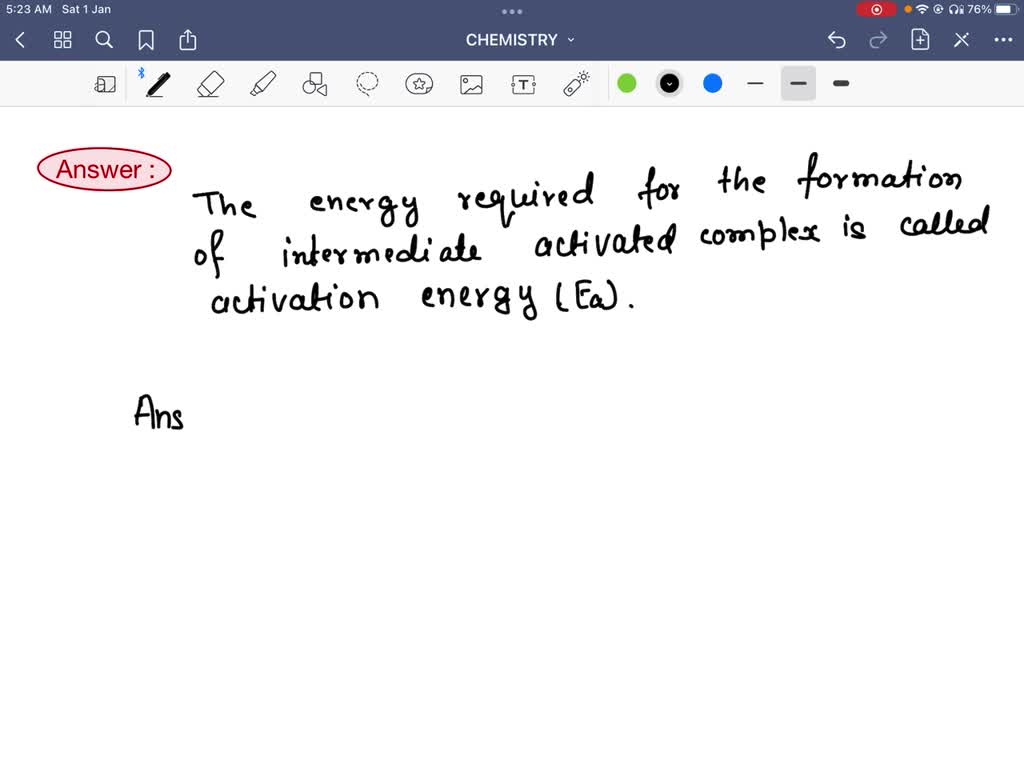 5:23 AM Sat 1 Jan
76%
CHEMISTRY
T
Answer :
The energy required for the formation
of intermediate activated complex is called
activation energy (Ea).
Ans